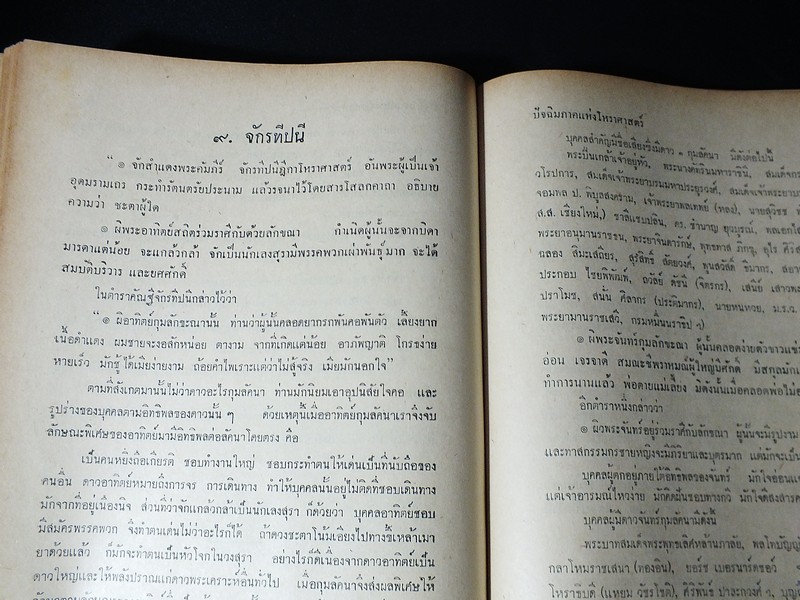 ๙. จักรทีปนี
" ๏ จักสำแดงพระคัมภีร์ จักรทีปนีฎีกาโหราศาสตร์ อันพระผู้เป็นเจ้า
อุดมรามเถร กระทำรัตนตรัยประนาม แล้วรจนาไว้โดยสารโสลกคาถา อธิบาย
ความว่า ชะตาผู้ใด
๏ ผิพระอาทิตย์สถิตร่วมราศีกับด้วยลักขณา กำเนิดผู้นั้นจะจากบิดา
มารดาแต่น้อย จะแกล้วกล้า จักเป็นนักเลงสุรามีพรรคพวกเผ่าพันธุ์มาก จะได้
สมบัติบริวาร และยศศักดิ์
ในตำราคัมภีร์จักรทีปนีกล่าวไว้ว่า
" ๏ ผิอาทิตย์กุมลักขณานั้น ท่านว่าผู้นั้นคลอดยากรกพันคอพันตัว เลี้ยงยาก
เนื้อดำแดง ผมชายจะงอสักหน่อย ตางาม จากที่เกิดแต่น้อย อาภัพญาติ โกรธง่าย
หายเร็ว มักชู้ได้เมียง่ายงาม ถ้อยคำไพเราะแต่ว่าไม่สู้จริง เมียมักนอกใจ"
ตามที่สังเกตมานั้นไม่ว่าดาวอะไรกุมลัคนา ท่านมักนิยมเอาอุปนิสัยใจคอ และ
รูปร่างของบุคคลตามอิทธิพลของดาวนั้น ๆ ด้วยเหตุนี้เมื่ออาทิตย์กุมลัคนาเราจึงจับ
ลักษณะพิเศษของอาทิตย์มามีอิทธิพลต่อลัคนาโดยตรง คือ
เป็นคนหยิ่งถือเกียรติ ชอบทำงานใหญ่ ชอบกระทำตนให้เด่นเป็นที่นับถือของ
คนอื่น ดาวอาทิตย์หมายถึงการจร การเดินทาง ทำให้บุคคลนั้นอยู่ไม่ติดที่ชอบเดินทาง
มักจากที่อยู่เนืองนิจ ส่วนที่ว่าจักแกล้วกล้าเป็นนักเลงสุรา ก็ด้วยว่า บุคคลอาทิตย์ชอบ
มีสมัครพรรคพวก จึงทำตนเด่นไม่ว่าอะไรก็ได้ ถ้าดวงชะตาโน้มเอียงไปทางขี้เหล้าเมา
ยาด้วยแล้ว ก็มักจะทำตนเป็นหัวโจกในวงสุรา อย่างไรก็ดีเนื่องจากดาวอาทิตย์เป็น
ดาวใหญ่และให้พลังปราณแก่ดาวพระเคราะห์อื่นทั่วไป เมื่อกุมลัคนาจึงส่งผลพิเศษให้
ปัจฉิมภาคแห่งโหราศาสตร์
บุคคลสำคัญมีชื่อเสียงซึ่งมีดาว ๑ กุมลัคนา มีดังต่อไปนี้
พระปิ่นเกล้าเจ้าอยู่หัว, พระนางศุภัทรินมหาราชินี, สมเด็จกร
วโรปการ, สมเด็จเจ้าพระยาบรมมหาประยุรวงศ์, สมเด็จเจ้าพระยาบร
จอมพล ป. พิบูลสงคราม, เจ้าพระยาพลเทพย์ (หลง), นายสุวิชช
ส.ส. เชียงใหม่,) ชาลีแชปลิน, ดร. ชำนาญ ยุวบูรณ์, พลเอกไส
พระยาอนุมานราชธน, พระยาจินดารักษ์, พุทธทาส ภิกขุ, ศุโข ศิร
ฉลอง สิมะเสถียร, สุรัสทิ์ สัตยวงศ์, พูนสวัสดิ์ ธิมากร, สยา
ประกอบ ไชยพิพัฒน์, ถวัลย์ ดัชนี (จิตรกร), เสนีย์ เสาวพง
ปราโมช, สนั่น ศิลากร (ประติมากร), นายหนหวย, ม.ร.ว.
พระยามานราชเสวี, กรมหมื่นนราธิป ฯ)
๏ ผิพระจันทร์กุมลักขณา ผู้นั้นคลอดง่ายตัวขาวแช่ม
อ่อน เจรจาดี สมณะชีพราหมณ์ผู้ใหญ่มีศักดิ์ มีสกุลมัก
ทำการนานแล้ว พ่อตายแม่เลี้ยง มิดังนั้นเมื่อคลอดพ่อไม่อ
อีกตำราหนึ่งกล่าวว่า
๏ ผิวพระจันทร์อยู่ร่วมราศีกับลักขณา ผู้นั้นจะมีรูปงาม
และทาสกรรมกรชายหญิงจะมีภิริยาและบุตรมาก แต่มักจะเป็น
บุคคลผู้ตกอยู่ภายใต้อิทธิพลของจันทร์ มักใจอ่อนแอ
แต่เจ้าอารมณ์ไหวง่าย มักคิดผันชอบทางกวี มักใจดีสงสารค
บุคคลผู้มีดาวจันทร์กุมลัคนามีดังนี้
พระบาทสมเด็จพระพุทธเลิศหล้านภาลัย, พลไทบัญญั
กลาโหมราชเสนา (ทองอิน), ยอร์ช เบอร์นาร์ดชอว์
โหราธิบดี (แหยม วัชรโชติ), ศิริพันธ์ ปาละกวงศ์ ฯ,